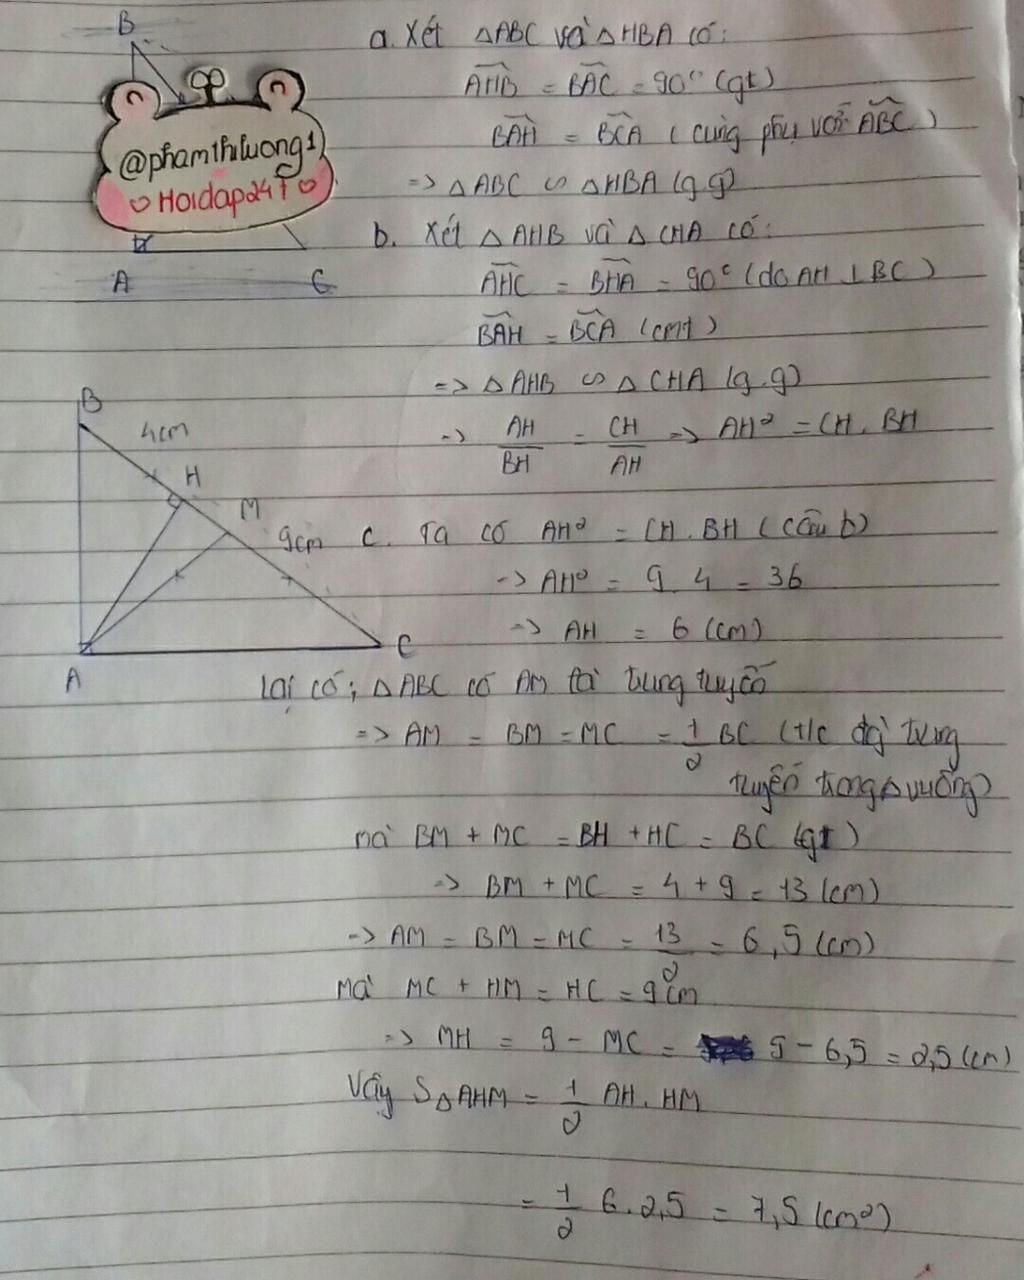 B
@phamthiluong1
Hoidap247
A C
a. Xét △ABC và △HBA có:
AHB = BAC = 90° (gt)
BAH = BCA (cùng phụ với ABC)
=> △ABC ∽ △HBA (g.g)
b. Xét △AHB và △CHA có:
AHC = BHA = 90° (do AH ⊥ BC)
BAH = BCA (cmt)
=> △AHB ∽ △CHA (g.g)
=> AH/BH = CH/AH => AH² = CH. BH
B
4cm
H
M
9cm
A
C
c. Ta có AH² = CH. BH (câu b)
=> AH² = 9. 4 = 36
=> AH = 6 (cm)
Lại có; △ABC có AM là trung tuyến
=> AM = BM = MC = 1/2 BC (t/c đg` trung
tuyến trong △ vuông)
mà BM + MC = BH + HC = BC (gt)
=> BM + MC = 4 + 9 = 13 (cm)
=> AM = BM = MC = 13/2 = 6,5 (cm)
Mà MC + HM = HC = 9cm
=> MH = 9 - MC = 9 - 6,5 = 2,5 (cm)
Vậy S△AHM = 1/2 AH. HM
= 1/2 6. 2,5 = 7,5 (cm²)